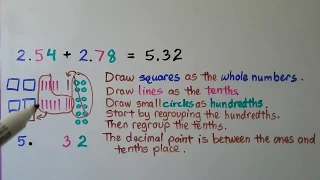 2.54 + 2.78 = 5.32
Draw squares as the whole numbers.
Draw lines as the tenths.
Draw small circles as hundredths.
Start by regrouping the hundredths.
Then regroup the tenths.
The decimal point is between the ones and
tenths place.
5. 3 2